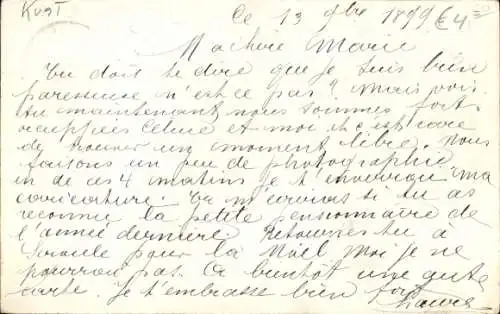 Kunst
Ce 13 9bre 1899 €4
Ma chère Marie
Tu dois te dire que je suis bien
paresseuse n'est ce pas? Mais vois
tu maintenant nous sommes fort
occupées Céline et moi et c'est rare
de trouver un moment libre. Nous
faisons un peu de photographie
un de ces 4 matins je t'enverrai ma
caricature. Tu m'écriras si tu as
reconnu la petite pensionnaire de
l'année dernière Retournes tu à
pour la Noël Moi je ne
pourrai pas. A bientôt une
carte. Je t'embrasse bien fort
Laure